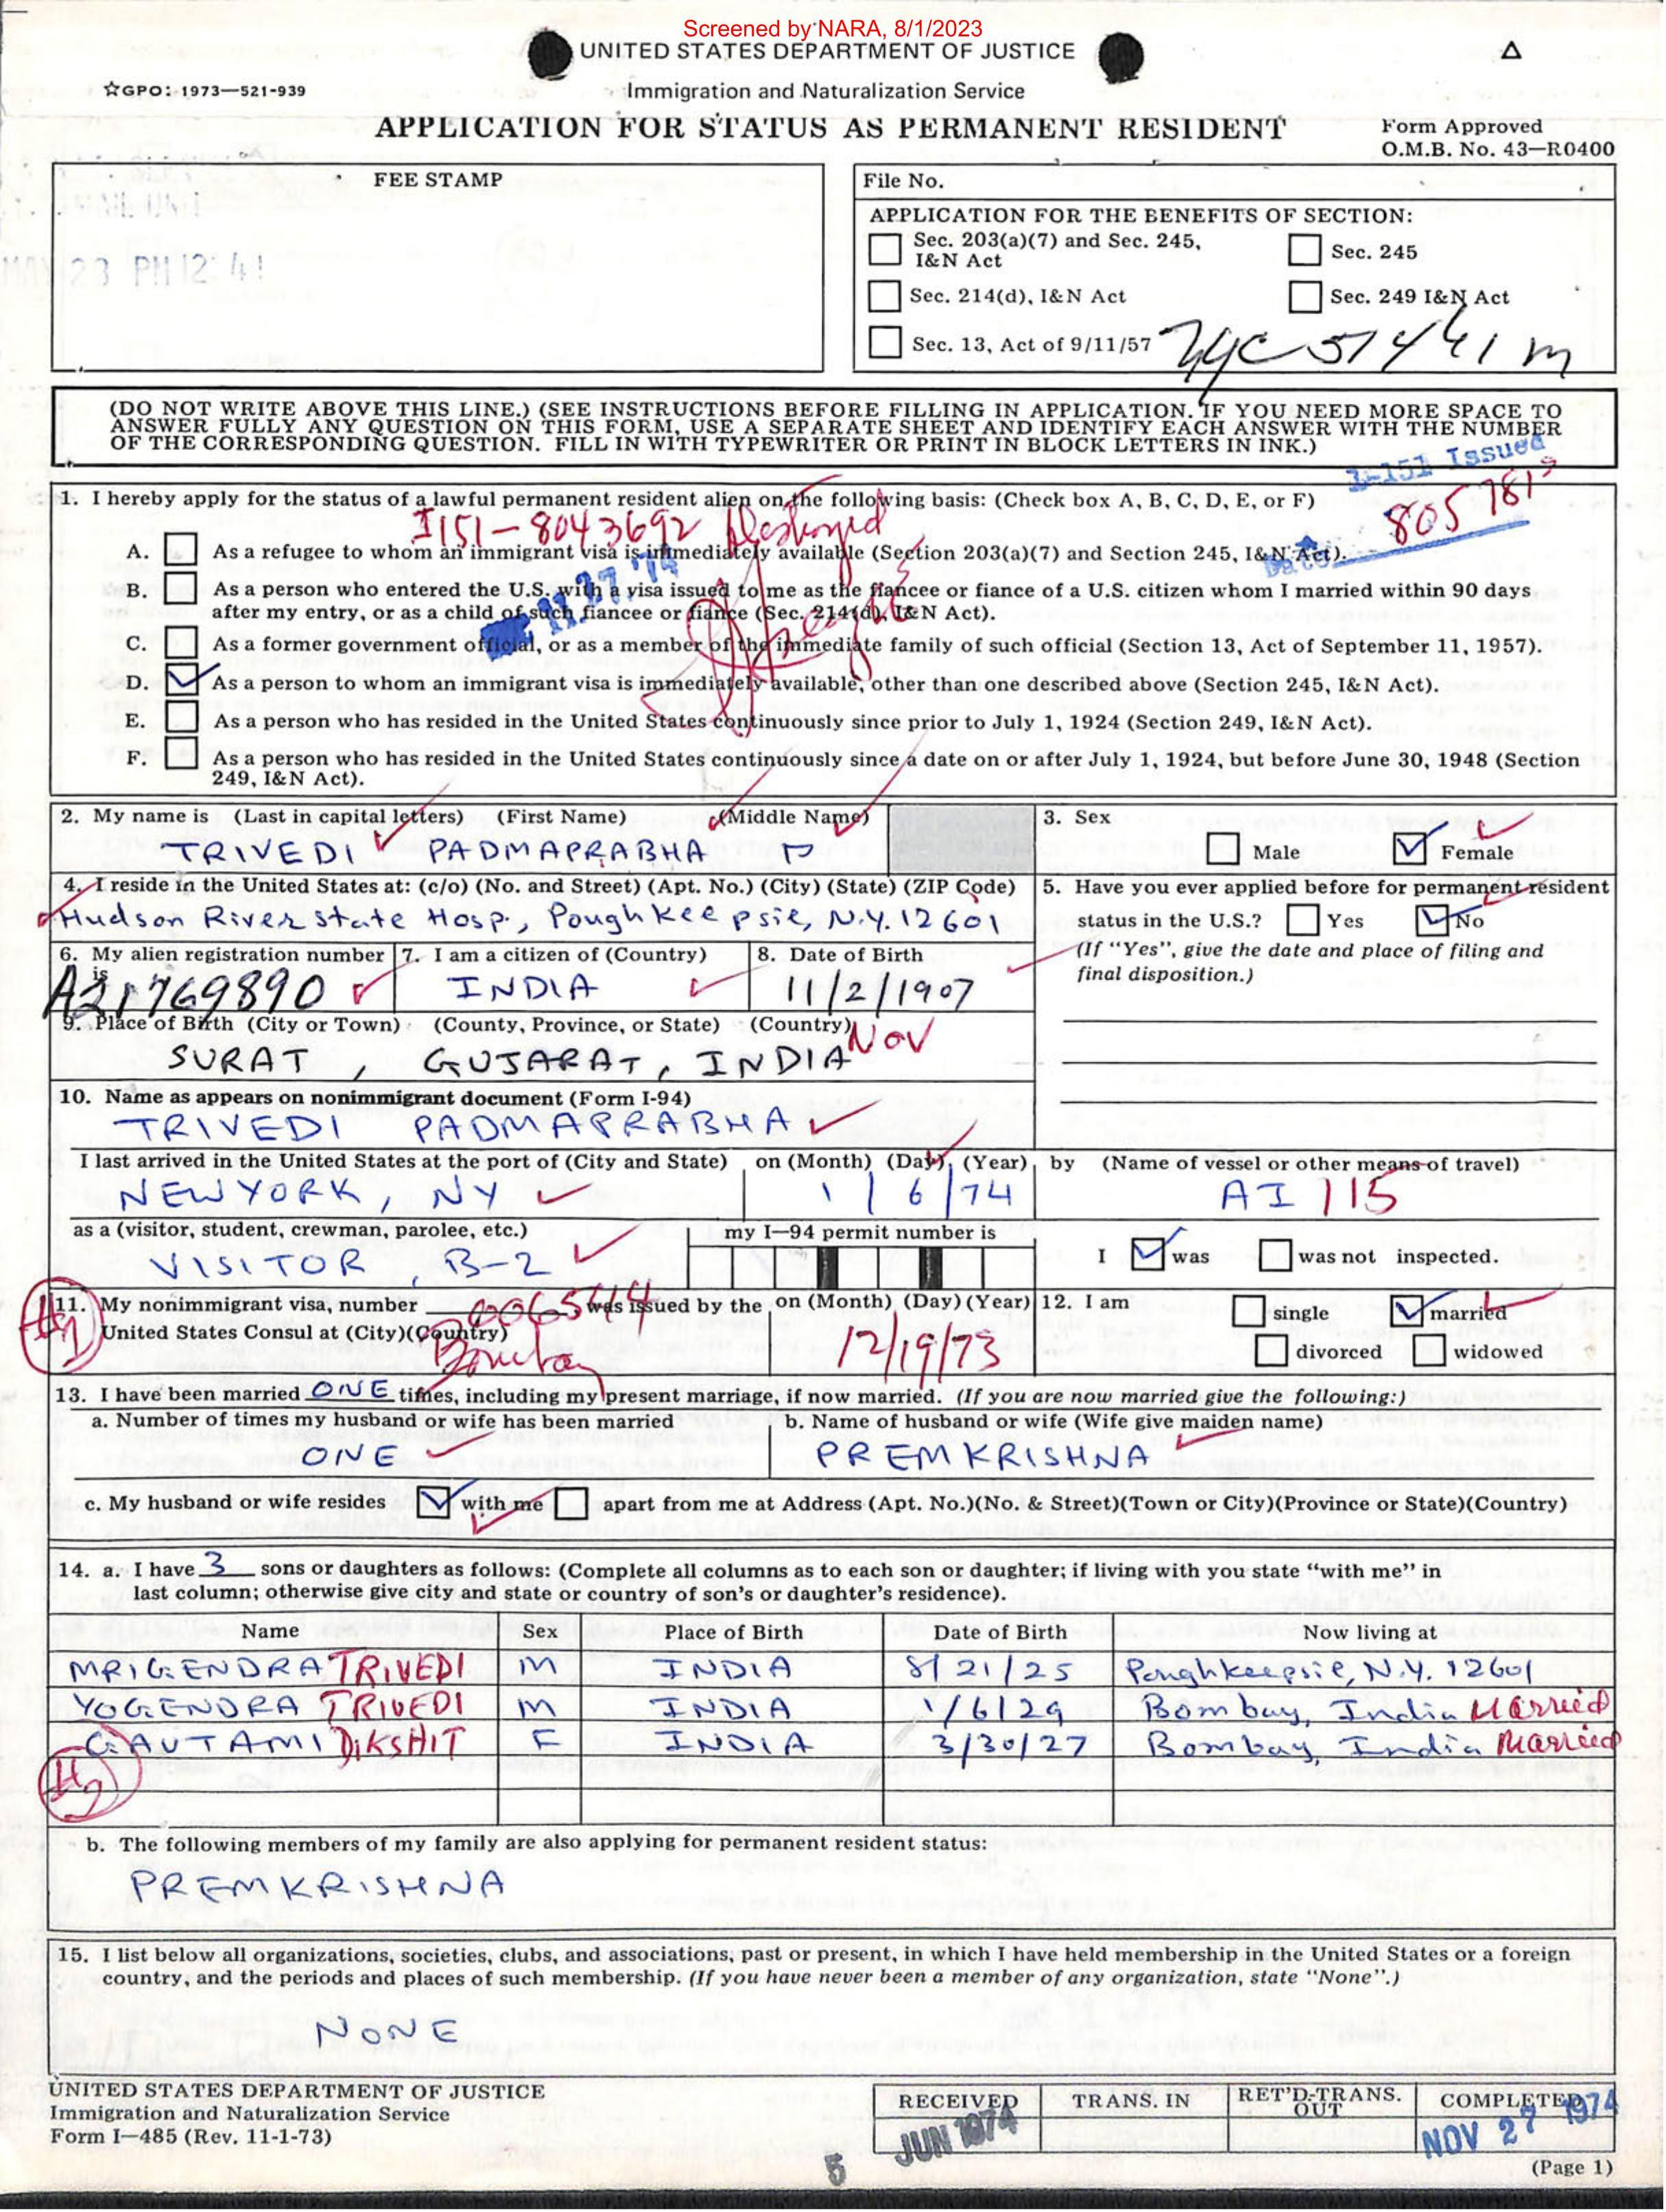 Screened by NARA, 8/1/2023
UNITED STATES DEPARTMENT OF JUSTICE
☆GPO: 1973—521-939
Immigration and Naturalization Service
APPLICATION FOR STATUS AS PERMANENT RESIDENT
Form Approved
O.M.B. No. 43—R0400
FEE STAMP
MAY 23 PM 12:41
File No.
APPLICATION FOR THE BENEFITS OF SECTION:
Sec. 203(a)(7) and Sec. 245, I&N Act
Sec. 245
Sec. 214(d), I&N Act
Sec. 249 I&N Act
Sec. 13, Act of 9/11/57
(DO NOT WRITE ABOVE THIS LINE.) (SEE INSTRUCTIONS BEFORE FILLING IN APPLICATION. IF YOU NEED MORE SPACE TO
ANSWER FULLY ANY QUESTION ON THIS FORM, USE A SEPARATE SHEET AND IDENTIFY EACH ANSWER WITH THE NUMBER
OF THE CORRESPONDING QUESTION. FILL IN WITH TYPEWRITER OR PRINT IN BLOCK LETTERS IN INK.)
I-151 Issued
1. I hereby apply for the status of a lawful permanent resident alien on the following basis: (Check box A, B, C, D, E, or F)
I151-8043692 Destroyed
A. As a refugee to whom an immigrant visa is immediately available (Section 203(a)(7) and Section 245, I&N Act).
Date
B. As a person who entered the U.S. with a visa issued to me as the fiancee or fiance of a U.S. citizen whom I married within 90 days
after my entry, or as a child of such fiancee or fiance (Sec. 214(d), I&N Act).
C. As a former government official, or as a member of the immediate family of such official (Section 13, Act of September 11, 1957).
D. As a person to whom an immigrant visa is immediately available, other than one described above (Section 245, I&N Act).
E. As a person who has resided in the United States continuously since prior to July 1, 1924 (Section 249, I&N Act).
F. As a person who has resided in the United States continuously since a date on or after July 1, 1924, but before June 30, 1948 (Section
249, I&N Act).
2. My name is (Last in capital letters) (First Name) (Middle Name)
TRIVEDI PADMAPRABHA P
3. Sex
Male Female
4. I reside in the United States at: (c/o) (No. and Street) (Apt. No.) (City) (State) (ZIP Code)
Hudson River state Hosp., Poughkeepsie, N.Y. 12601
5. Have you ever applied before for permanent resident
status in the U.S.? Yes No
(If "Yes", give the date and place of filing and
final disposition.)
6. My alien registration number is
A21769890
7. I am a citizen of (Country)
INDIA
8. Date of Birth
11/2/1907
Nov
9. Place of Birth (City or Town) (County, Province, or State) (Country)
SURAT, GUJARAT, INDIA
10. Name as appears on nonimmigrant document (Form I-94)
TRIVEDI PADMAPRABHA
I last arrived in the United States at the port of (City and State) on (Month) (Day) (Year) by (Name of vessel or other means of travel)
NEW YORK, NY 1/6/74 AI 115
as a (visitor, student, crewman, parolee, etc.) my I—94 permit number is
VISITOR, B-2
I was was not inspected.
11. My nonimmigrant visa, number 0065414 was issued by the on (Month) (Day) (Year)
United States Consul at (City)(Country)
Bombay 12/19/73
12. I am
single married
divorced widowed
13. I have been married ONE times, including my present marriage, if now married. (If you are now married give the following:)
a. Number of times my husband or wife has been married b. Name of husband or wife (Wife give maiden name)
ONE PREMKRISHNA
c. My husband or wife resides with me apart from me at Address (Apt. No.)(No. & Street)(Town or City)(Province or State)(Country)
14. a. I have 3 sons or daughters as follows: (Complete all columns as to each son or daughter; if living with you state "with me" in
last column; otherwise give city and state or country of son's or daughter's residence).
Name Sex Place of Birth Date of Birth Now living at
MRIGENDRA TRIVEDI M INDIA 8/21/25 Poughkeepsie, N.Y. 12601
YOGENDRA TRIVEDI M INDIA 1/6/29 Bombay, India Married
GAUTAMI DIKSHIT F INDIA 3/30/27 Bombay, India Married
b. The following members of my family are also applying for permanent resident status:
PREMKRISHNA
15. I list below all organizations, societies, clubs, and associations, past or present, in which I have held membership in the United States or a foreign
country, and the periods and places of such membership. (If you have never been a member of any organization, state "None".)
NONE
UNITED STATES DEPARTMENT OF JUSTICE
Immigration and Naturalization Service
Form I—485 (Rev. 11-1-73)
RECEIVED TRANS. IN RET'D-TRANS. OUT COMPLETED
5 JUN 1974
NOV 27 1974
(Page 1)